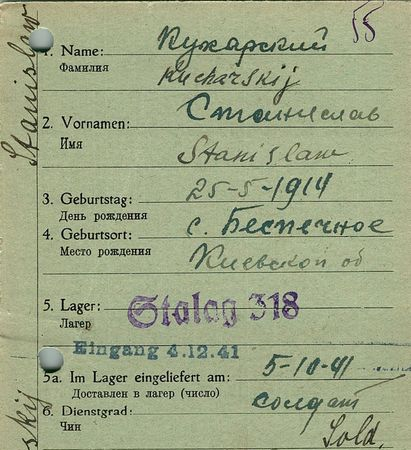 55
Stanislaw
1. Name: Кухарский
Фамилия Kucharskij
Станислав
2. Vornamen:
Имя Stanislaw
3. Geburtstag: 25-5-1914
День рождения
4. Geburtsort: с. Беспечное
Место рождения Киевской об
5. Lager: Stalag 318
Лагер
Eingang 4.12.41
5a. Im Lager eingeliefert am: 5-10-41
Доставлен в лагер (число)
6. Dienstgrad: солдат
Чин Sold.
skij